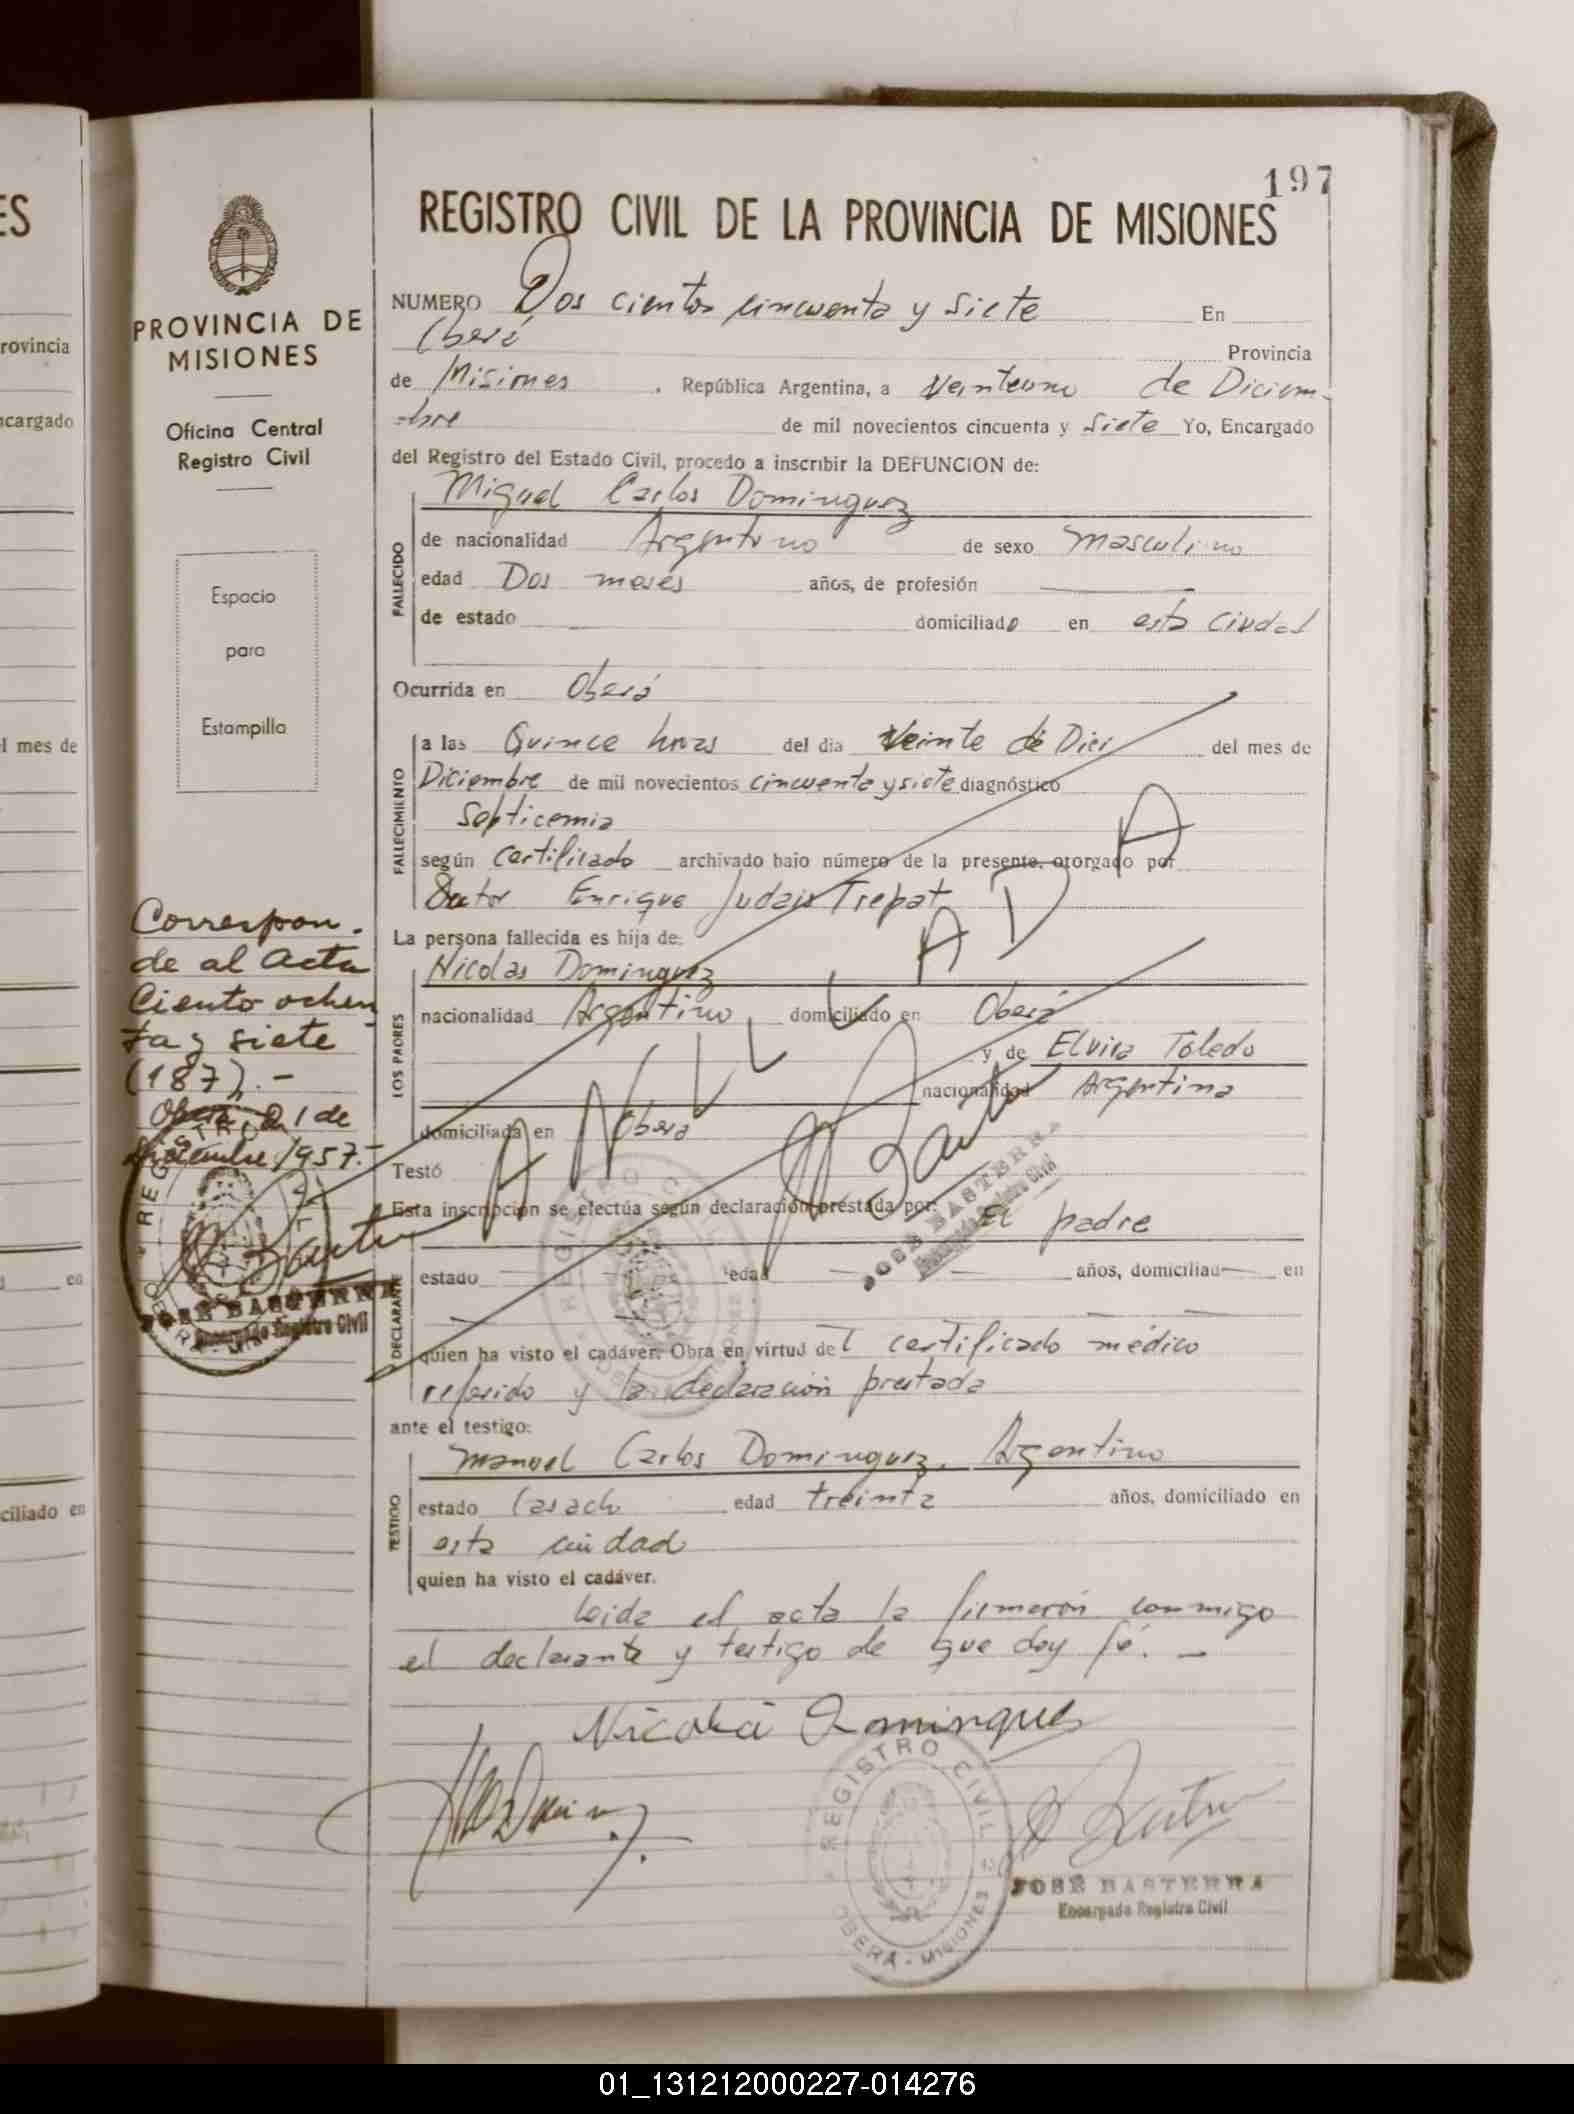 ES
rovincia
ncargado
l mes de
en
ciliado en
PROVINCIA DE
MISIONES
Oficina Central
Registro Civil
Espacio
para
Estampilla
Correspon.
de al acta
Ciento ochen
ta y siete
(187).-
Oberá, 21 de
Diciembre 1957.-
JOSÉ BASTERRA
Encargado Registro Civil
197
REGISTRO CIVIL DE LA PROVINCIA DE MISIONES
NUMERO Dos cientos cincuenta y siete En
Oberá Provincia
de Misiones , República Argentina, a Veintiuno de Diciem-
-bre de mil novecientos cincuenta y siete Yo, Encargado
del Registro del Estado Civil, procedo a inscribir la DEFUNCION de:
Miguel Carlos Dominguez
FALLECIDO
de nacionalidad Argentino de sexo masculino
edad Dos meses años, de profesión —
de estado — domiciliado en esta ciudad
Ocurrida en Oberá
FALLECIMIENTO
a las Quince horas del dia Veinte de Dici del mes de
Diciembre de mil novecientos cincuenta y siete diagnóstico
Septicemia
según Certificado archivado bajo número de la presente, otorgado por
Doctor Enrique Judais Trepat
La persona fallecida es hija de:
LOS PADRES
Nicolas Dominguez
nacionalidad Argentino domiciliado en Oberá
y de Elvira Toledo
nacionalidad Argentina
domiciliada en Oberá
ANULADA
Testó
Esta inscripción se efectúa según declaración prestada por: El padre
JOSÉ BASTERRA
Encargado Registro Civil
DECLARANTE
estado — edad — años, domiciliad— en
— — —
quien ha visto el cadáver. Obra en virtud del certificado médico
referido y la declaración prestada
ante el testigo:
TESTIGO
Manuel Carlos Dominguez, Argentino
estado Casado edad treinta años, domiciliado en
esta ciudad
quien ha visto el cadáver.
Leida el acta la firmaron conmigo
el declarante y testigo de que doy fé. —
Nicolá Domingues
REGISTRO CIVIL
OBERA - MISIONES
JOSÉ BASTERRA
Encargado Registro Civil
01_131212000227-014276